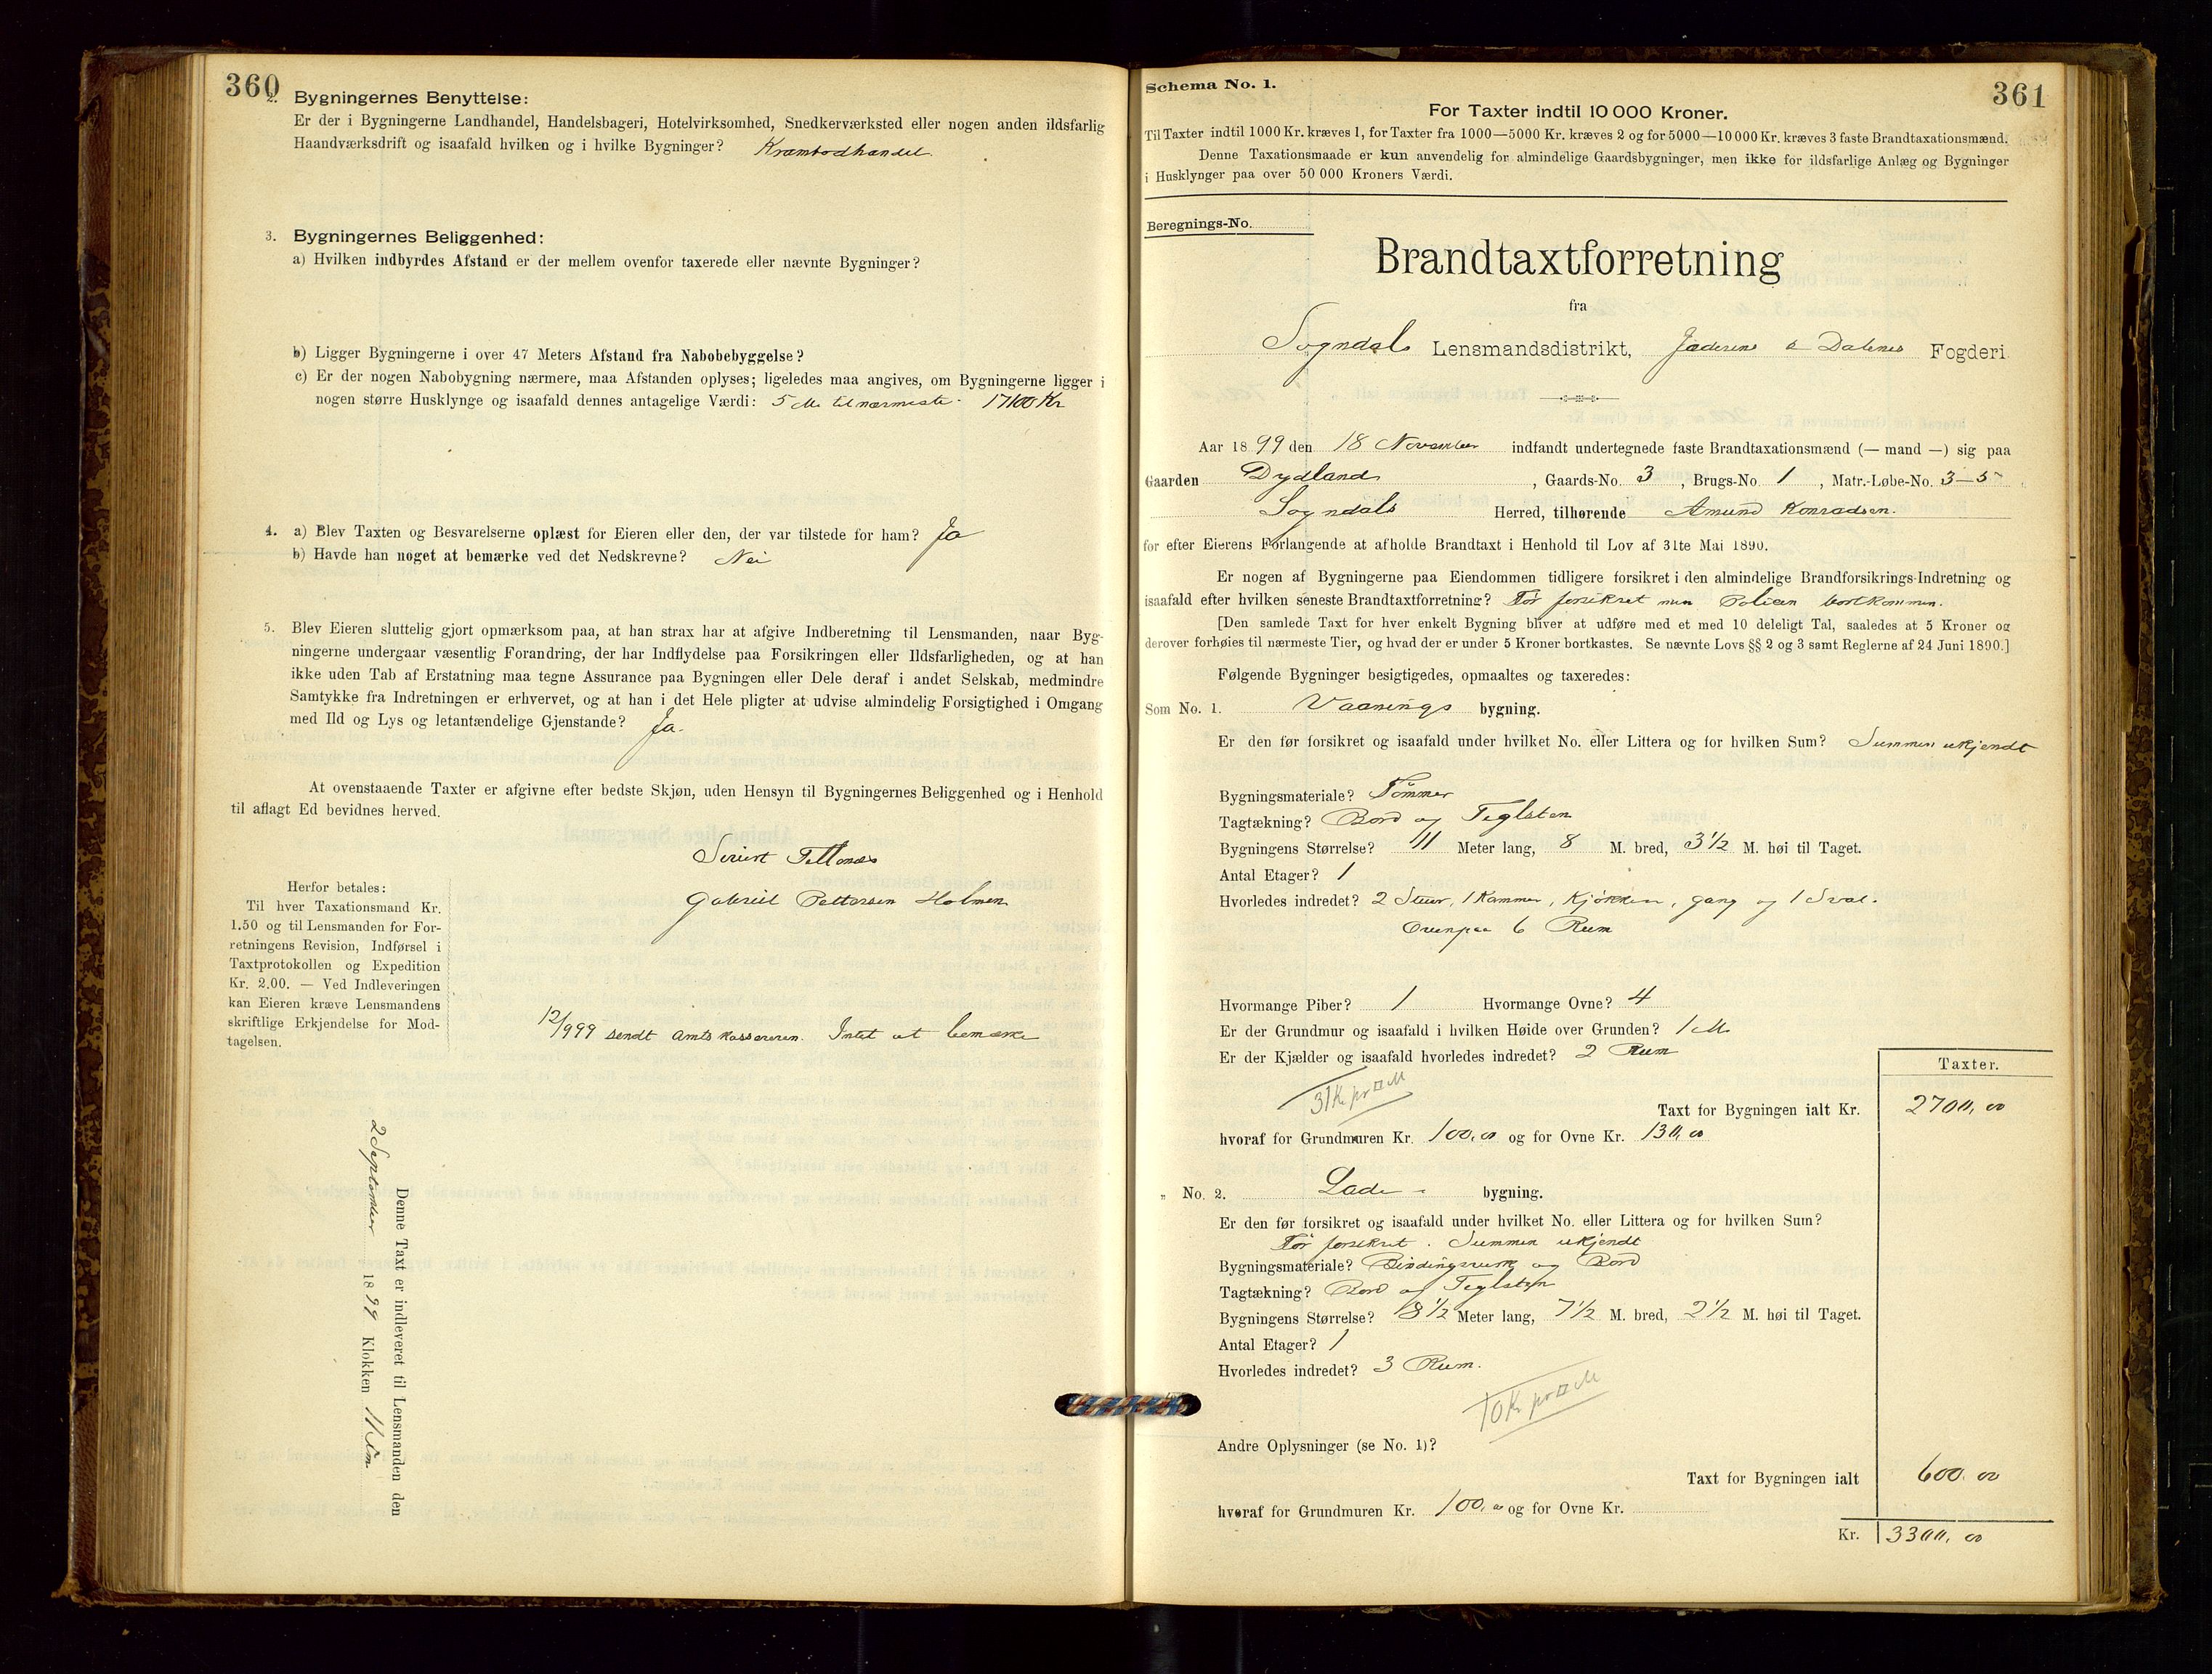 360
2. Bygningernes Benyttelse:
Er der i Bygningerne Landhandel, Handelsbageri, Hotelvirksomhed, Snedkerværksted eller nogen anden ildsfarlig
Haandværksdrift og isaafald hvilken og i hvilke Bygninger? Krambodhandel.
3. Bygningernes Beliggenhed:
a) Hvilken indbyrdes Afstand er der mellem ovenfor taxerede eller nævnte Bygninger?
b) Ligger Bygningerne i over 47 Meters Afstand fra Nabobebyggelse?
c) Er der nogen Nabobygning nærmere, maa Afstanden oplyses; ligeledes maa angives, om Bygningerne ligger i
nogen større Husklynge og isaafald dennes antagelige Værdi: 5 M. til nærmeste. 17100 Kr
4. a) Blev Taxten og Besvarelserne oplæst for Eieren eller den, der var tilstede for ham? Ja
b) Havde han noget at bemærke ved det Nedskrevne? Nei
5. Blev Eieren sluttelig gjort opmærksom paa, at han strax har at afgive Indberetning til Lensmanden, naar Byg-
ningerne undergaar væsentlig Forandring, der har Indflydelse paa Forsikringen eller Ildsfarligheden, og at han
ikke uden Tab af Erstatning maa tegne Assurance paa Bygningen eller Dele deraf i andet Selskab, medmindre
Samtykke fra Indretningen er erhvervet, og at han i det Hele pligter at udvise almindelig Forsigtighed i Omgang
med Ild og Lys og letantændelige Gjenstande? Ja.
At ovenstaaende Taxter er afgivne efter bedste Skjøn, uden Hensyn til Bygningernes Beliggenhed og i Henhold
til aflagt Ed bevidnes herved.
Tellnes
Gabriel Pettersen Holmen
Herfor betales:
Til hver Taxationsmand Kr.
1.50 og til Lensmanden for For-
retningens Revision, Indførsel i
Taxtprotokollen og Expedition
Kr. 2.00. — Ved Indleveringen
kan Eieren kræve Lensmandens
skriftlige Erkjendelse for Mod-
tagelsen.
12/999 sendt Amtskassereren. Intet at bemærke
Denne Taxt er indleveret til Lensmanden den
2 September 1899 Klokken
Schema No. 1.
361
For Taxter indtil 10 000 Kroner.
Til Taxter indtil 1000 Kr. kræves 1, for Taxter fra 1000—5000 Kr. kræves 2 og for 5000—10 000 Kr. kræves 3 faste Brandtaxationsmænd.
Denne Taxationsmaade er kun anvendelig for almindelige Gaardsbygninger, men ikke for ildsfarlige Anlæg og Bygninger
i Husklynger paa over 50 000 Kroners Værdi.
Beregnings-No.
Brandtaxtforretning
fra
Sogndals Lensmandsdistrikt, Jæderens & Dalenes Fogderi
Aar 1899 den 18 November indfandt undertegnede faste Brandtaxationsmænd (— mand —) sig paa
Gaarden Dydland, Gaards-No. 3, Brugs-No. 1, Matr.-Løbe-No. 3–5
Sogndals Herred, tilhørende Amund Konradsen.
for efter Eierens Forlangende at afholde Brandtaxt i Henhold til Lov af 31te Mai 1890.
Er nogen af Bygningerne paa Eiendommen tidligere forsikret i den almindelige Brandforsikrings-Indretning og
isaafald efter hvilken seneste Brandtaxtforretning? Før forsikret men Policen bortkommen.
[Den samlede Taxt for hver enkelt Bygning bliver at udføre med et med 10 deleligt Tal, saaledes at 5 Kroner og
derover forhøies til nærmeste Tier, og hvad der er under 5 Kroner bortkastes. Se nævnte Lovs §§ 2 og 3 samt Reglerne af 24 Juni 1890.]
Følgende Bygninger besigtigedes, opmaaltes og taxeredes:
Som No. 1. Vaanings bygning.
Er den før forsikret og isaafald under hvilket No. eller Littera og for hvilken Sum? Summen ukjendt
Bygningsmateriale? Tømmer
Tagtækning? Bord og Teglsten
Bygningens Størrelse? 11 Meter lang, 8 M. bred, 3 1/2 M. høi til Taget.
Antal Etager? 1
Hvorledes indredet? 2 Stuer, 1 Kammer, Kjøkken, gang og 1 Sval.
Ovenpaa 6 Rum
Hvormange Piber? 1 Hvormange Ovne? 4
Er der Grundmur og isaafald i hvilken Høide over Grunden? 1 M.
Er der Kjælder og isaafald hvorledes indredet? 2 Rum
31 Kr. pr □ M
Taxter.
Taxt for Bygningen ialt Kr. 2700,00
hvoraf for Grundmuren Kr. 100,00 og for Ovne Kr. 130,00
„ No. 2. Lade bygning.
Er den før forsikret og isaafald under hvilket No. eller Littera og for hvilken Sum?
Før forsikret. Summen ukjendt
Bygningsmateriale? Bindingsverk og Bord
Tagtækning? Bord og Teglsten
Bygningens Størrelse? 8 1/2 Meter lang, 7 1/2 M. bred, 2 1/2 M. høi til Taget.
Antal Etager? 1
Hvorledes indredet? 3 Rum.
10 Kr pr □ M
Andre Oplysninger (se No. 1)?
Taxt for Bygningen ialt 600.00
hvoraf for Grundmuren Kr. 100.00 og for Ovne Kr.
Kr. 3300,00